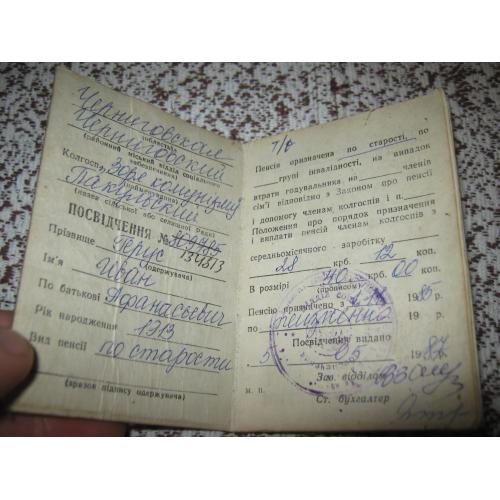 Черниговская
(область)
Черниговский
(районний міський відділ соціального
забезпечення)
Колгосп
(найменування)
Пакульский
(назва сільської або селищної Ради)
ПОСВІДЧЕННЯ №
134813
Прізвище Герус
(одержувача)
Ім'я Иван
По батькові Афанасьевич
Рік народження 1913
Вид пенсії по старости
(зразок підпису одержувача)
Пенсія призначена по старості, по
групі інвалідності, на випадок
втрати годувальника на членів
сім'ї відповідно з Законом про пенсії
і допомогу членам колгоспів і п.
Положення про порядок призначення
і виплати пенсій членам колгоспів з
середньомісячного заробітку
28 крб. 12 коп.
В розмірі 40 крб. 00 коп.
(прописом)
Пенсію призначено з 1985
по пожизненно 19 р.
Посвідчення видано
5 05 1987
Зав. відділом
М. П.
Ст. бухгалтер